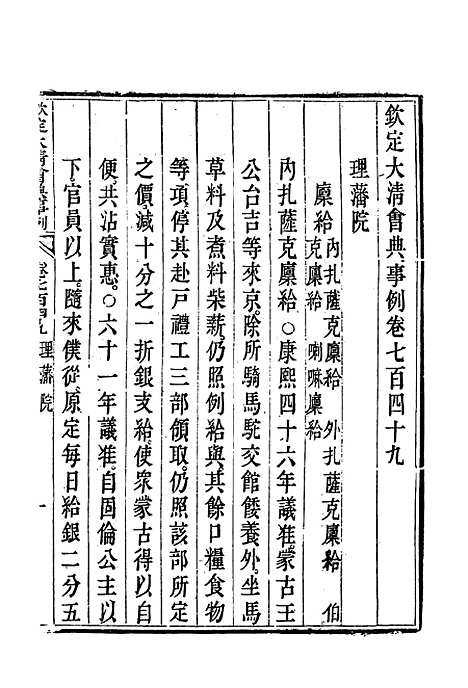 欽定大清會典事例卷七百四十九
理藩院
廩給 內扎薩克廩給 外扎薩克廩給 伯
克廩給 喇嘛廩給
內扎薩克廩給○康熙四十六年議准蒙古王
公台吉等來京除所騎馬駝交館餧養外坐馬
草料及煮料柴薪仍照例給與其餘口糧食物
等項停其赴戶禮工三部領取仍照該部所定
之價減十分之一折銀支給使衆蒙古得以自
便共沾實惠○六十一年議准自固倫公主以
下官員以上隨來僕從原定每日給銀二分五
欽定大清會典事例 卷七百四九 理藩院 一